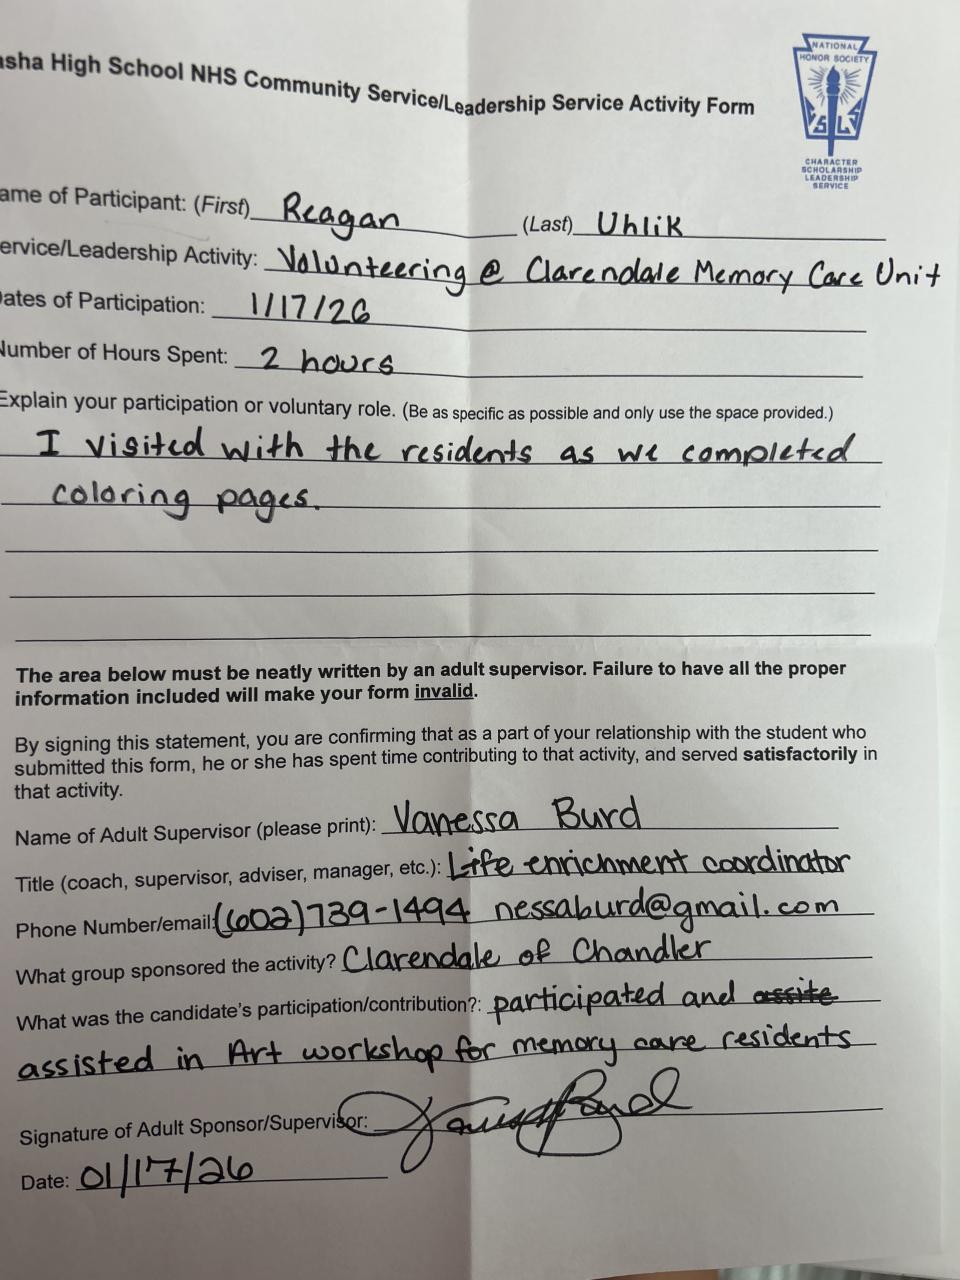 asha High School NHS Community Service/Leadership Service Activity Form
NATIONAL
HONOR SOCIETY
CHARACTER
SCHOLARSHIP
LEADERSHIP
SERVICE
ame of Participant: (First) Reagan (Last) Uhlik
ervice/Leadership Activity: Volunteering @ Clarendale Memory Care Unit
ates of Participation: 1/17/26
Number of Hours Spent: 2 hours
Explain your participation or voluntary role. (Be as specific as possible and only use the space provided.)
I visited with the residents as we completed
coloring pages.
The area below must be neatly written by an adult supervisor. Failure to have all the proper
information included will make your form invalid.
By signing this statement, you are confirming that as a part of your relationship with the student who
submitted this form, he or she has spent time contributing to that activity, and served satisfactorily in
that activity.
Name of Adult Supervisor (please print): Vanessa Burd
Title (coach, supervisor, adviser, manager, etc.): Life enrichment coordinator
Phone Number/email: (602)739-1494 nessaburd@gmail.com
What group sponsored the activity? Clarendale of Chandler
What was the candidate's participation/contribution?: participated and assite
assisted in Art workshop for memory care residents
Signature of Adult Sponsor/Supervisor: Vanessa Burd
Date: 01/17/26